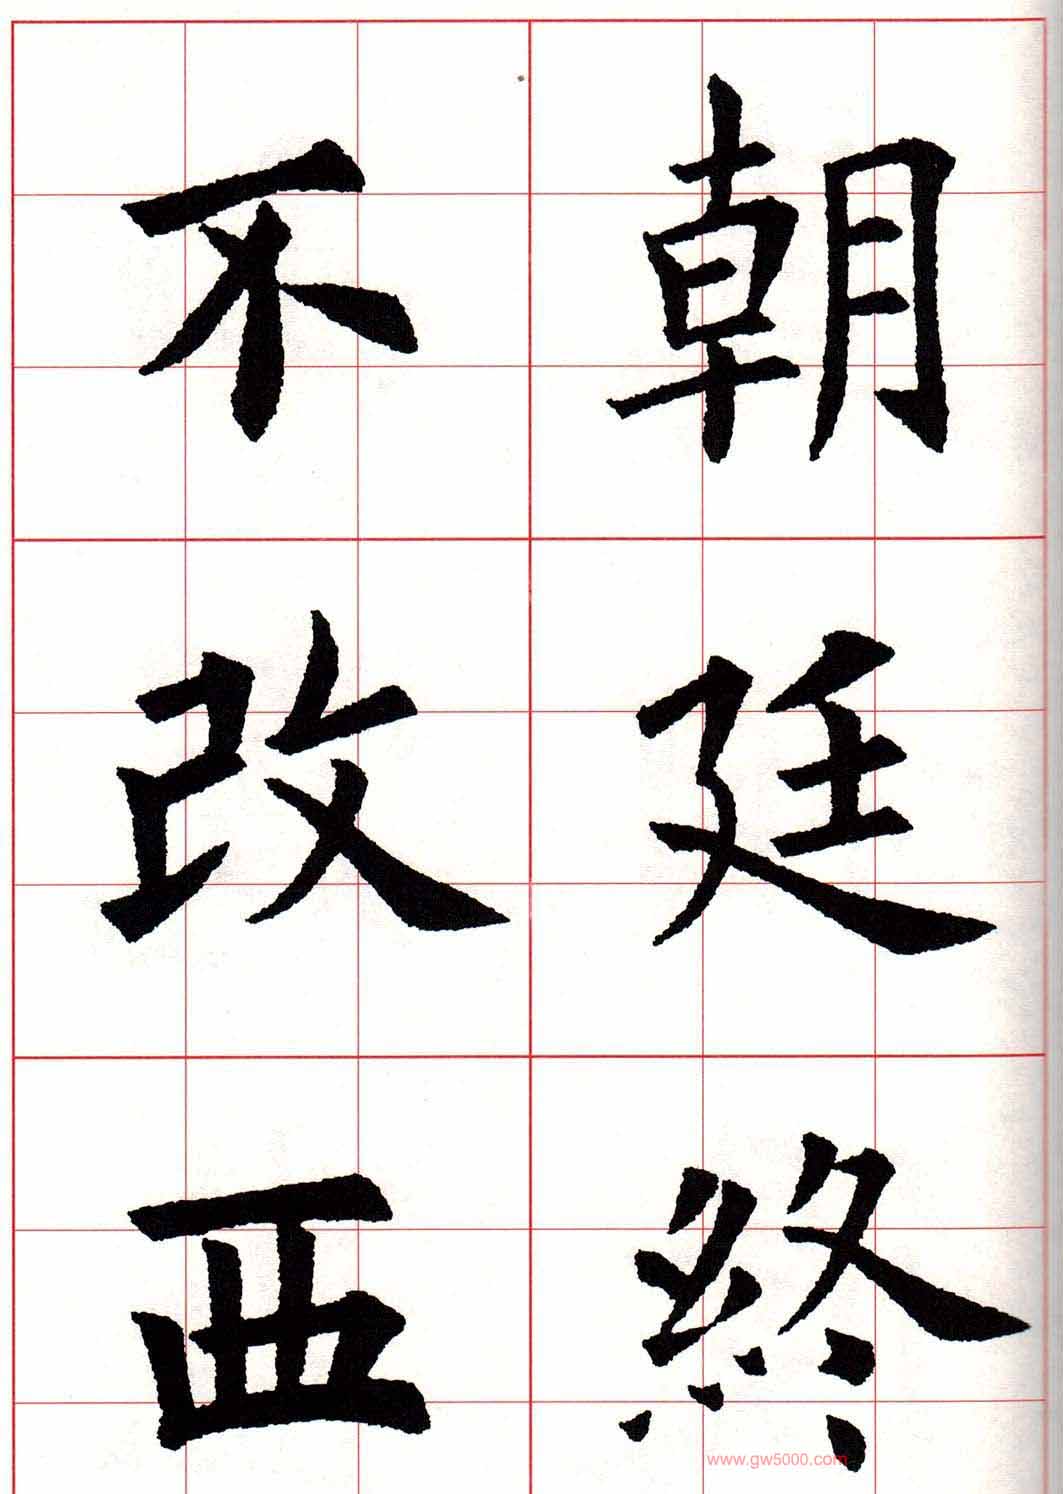 朝廷終
不改西
www.gw5000.com